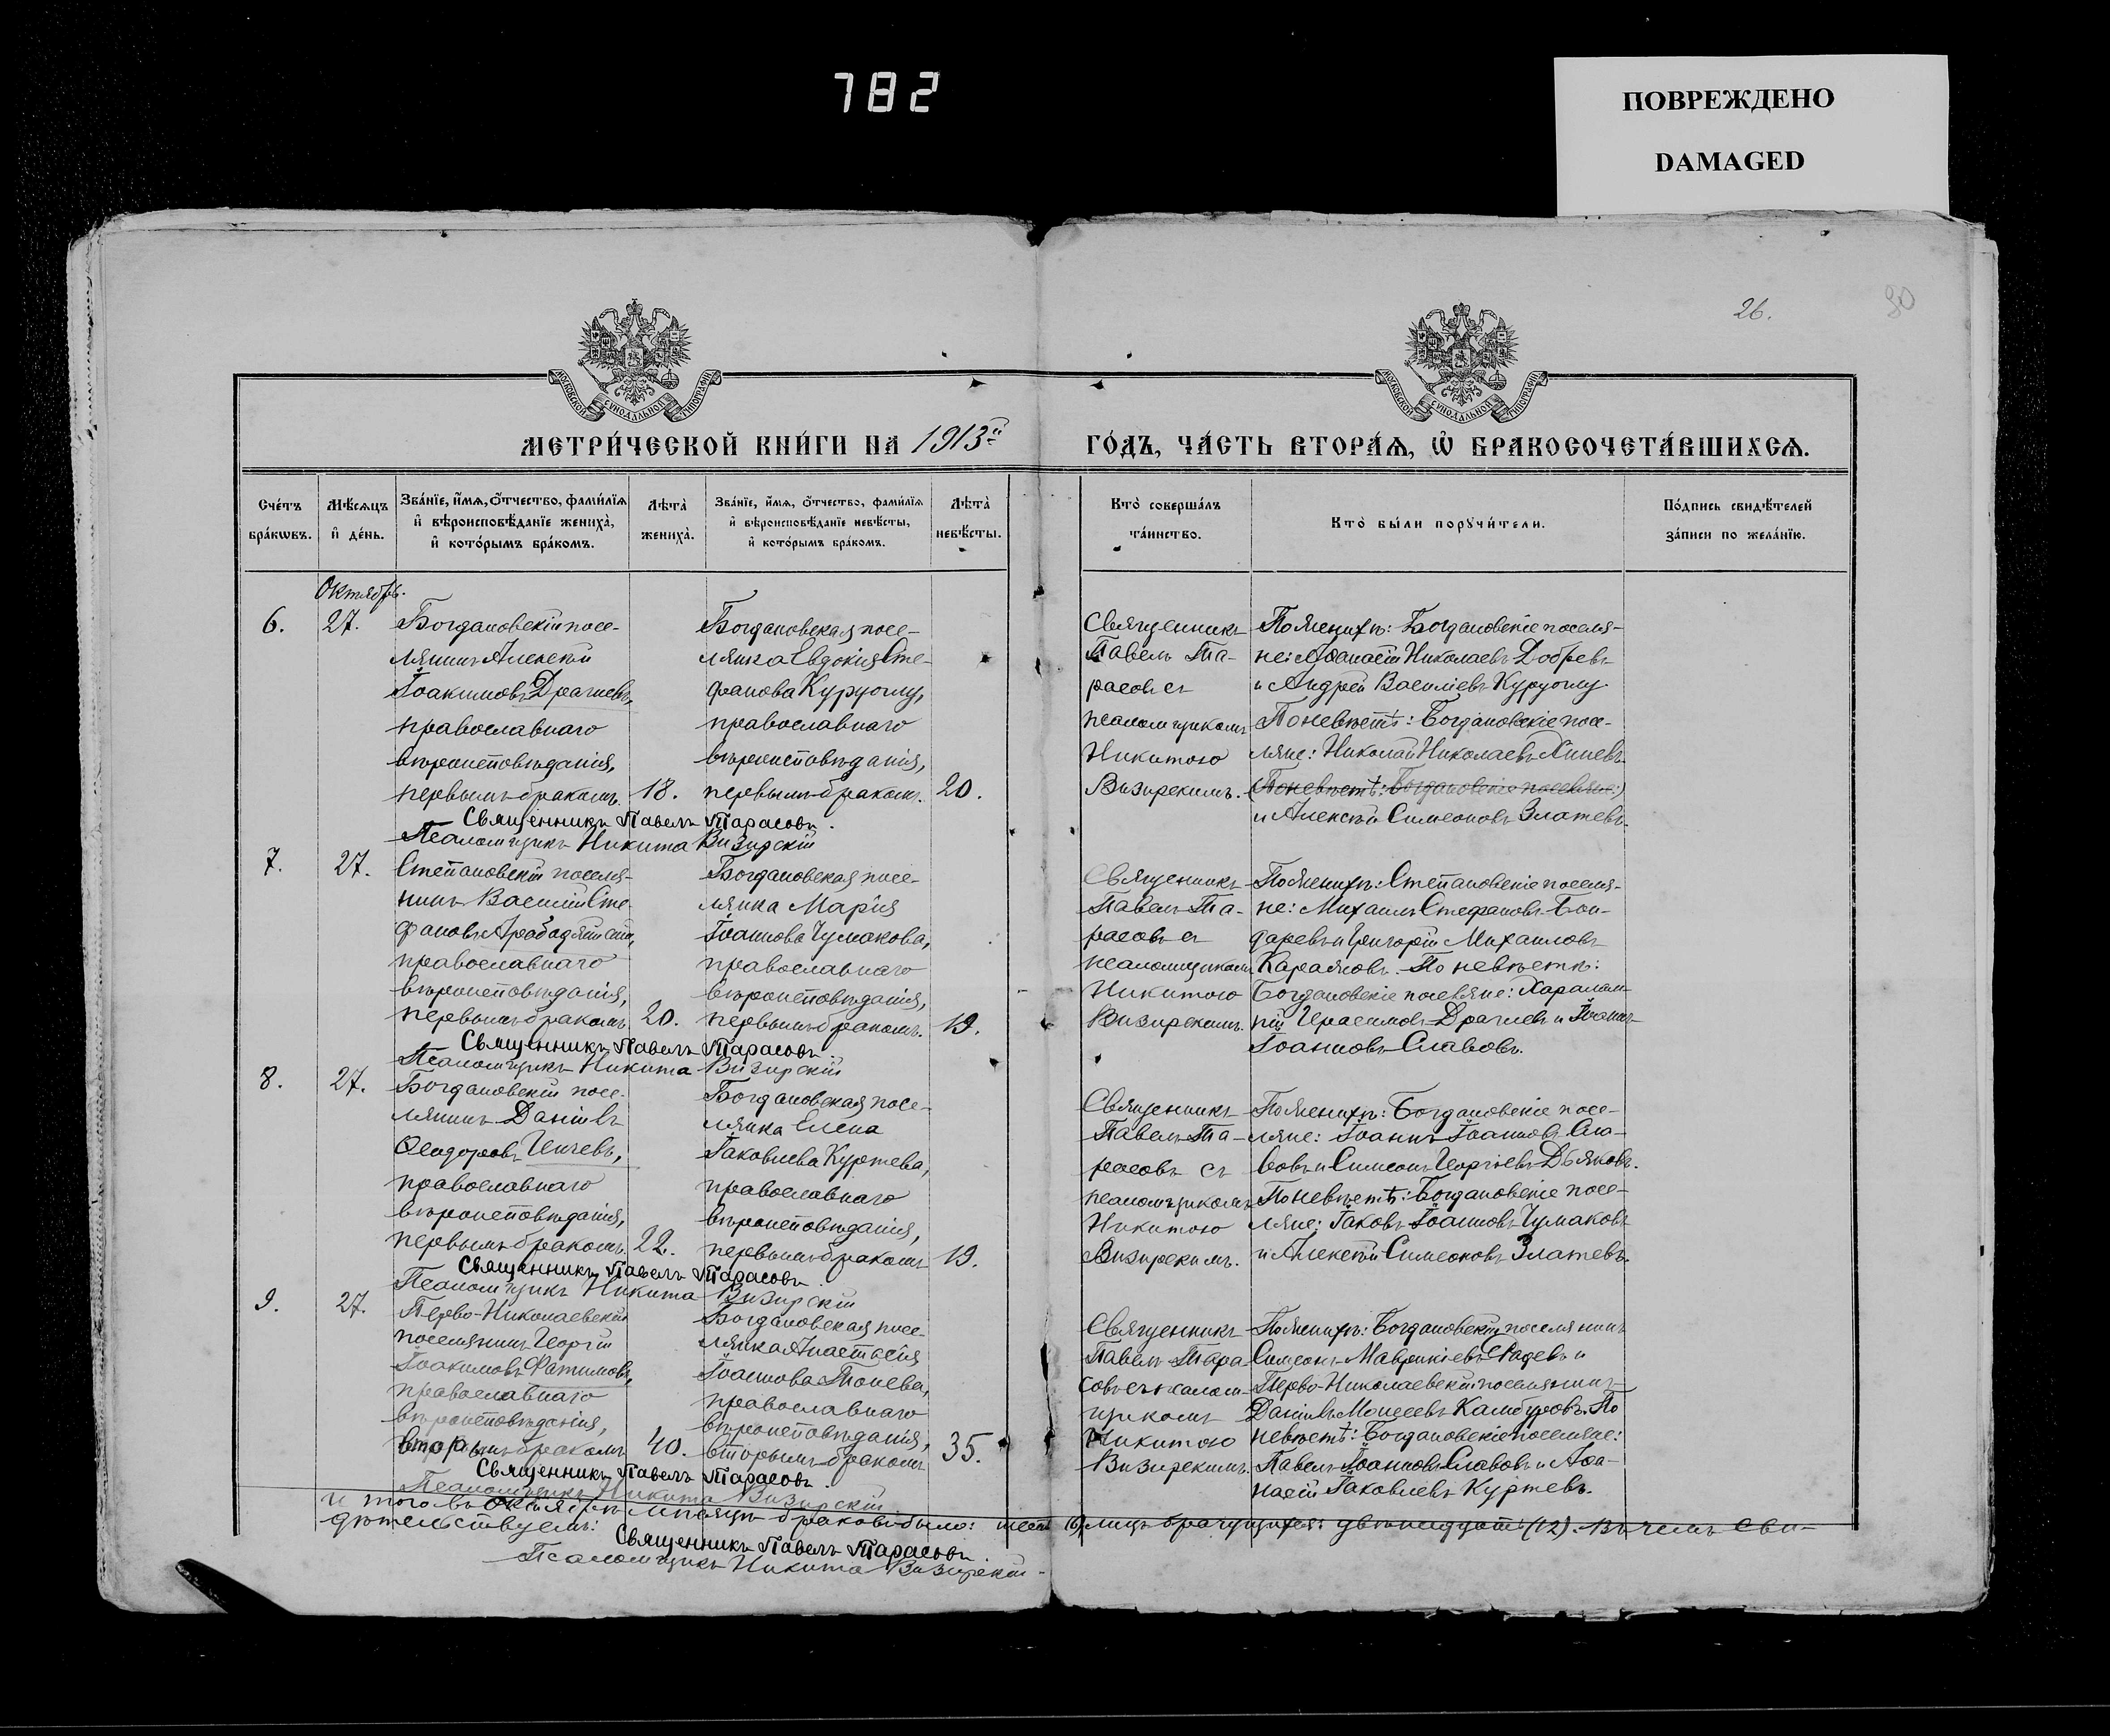 782
ПОВРЕЖДЕНО
DAMAGED
26.
90
МОСКОВСКОЙ СѴНОДАЛЬНОЙ ТИПОГРАФІИ
МОСКОВСКОЙ СѴНОДАЛЬНОЙ ТИПОГРАФІИ
МЕТРИ́ЧЕСКОЙ КНИ́ГИ НА 1913й
ГО́ДЪ, ЧА́СТЬ ВТОРА́Ѧ, Ѽ БРАКОСОЧЕТА́ВШИХСѦ.
Сче́тъ бра́кѡвъ.
Мѣ́сѧцъ и҆ де́нь.
Зва́нїе, и҆́мѧ, ѻ҆́тчество, фами́лїѧ и҆ вѣроисповѣ́данїе жениха̀, и҆ кото́рымъ бра́комъ.
Лѣта̀ жениха̀.
Зва́нїе, и҆́мѧ, ѻ҆́тчество, фами́лїѧ и҆ вѣроисповѣ́данїе невѣ́сты, и҆ кото́рымъ бра́комъ.
Лѣта̀ невѣ́сты.
Кто̀ соверша́лъ та́инство.
Кто̀ бы́ли порꙋчи́тели.
По́дпись свидѣ́телей за́писи по жела́нїю.
Октябрь.
6.
27.
Богдановскій посе-
лянинъ Алексѣй
Іоакимовъ Драгіевъ,
православнаго
вѣроисповѣданія,
первымъ бракомъ.
18.
Богдановская посе-
лянка Евдокія Сте-
фанова Куруоглу,
православнаго
вѣроисповѣданія,
первымъ бракомъ.
20.
Священникъ
Павелъ Та-
расовъ съ
псаломщикомъ
Никитою
Визирскимъ.
По женихѣ: Богдановскіе поселя-
не: Аѳанасій Николаевъ Добревъ
и Андрей Василіевъ Куруоглу.
По невѣстѣ: Богдановскіе посе-
ляне: Николай Николаевъ
(По невѣстѣ: Богдановскіе поселяне:)
и Алексѣй Симеоновъ Златевъ.
Священникъ Павелъ Тарасовъ.
Псаломщикъ Никита Визирскій
7.
27.
Степановскій поселя-
нинъ Василій Сте-
фановъ
православнаго
вѣроисповѣданія,
первымъ бракомъ.
20.
Богдановская посе-
лянка Марія
Іоаннова Чумакова,
православнаго
вѣроисповѣданія,
первымъ бракомъ.
19.
Священникъ
Павелъ Та-
расовъ съ
псаломщикомъ
Никитою
Визирскимъ.
По женихѣ: Степановскіе поселя-
не: Михаилъ Стефановъ Бон-
даревъ и Григорій Михаиловъ
Караяновъ. По невѣстѣ:
Богдановскіе поселяне: Харалам-
пій Герасимовъ Драгіевъ и Іоаннъ
Іоанновъ Славовъ.
Священникъ Павелъ Тарасовъ.
Псаломщикъ Никита Визирскій
8.
27.
Богдановскій посе-
лянинъ Даніилъ
Ѳеодоровъ Ченчевъ,
православнаго
вѣроисповѣданія,
первымъ бракомъ.
22.
Богдановская посе-
лянка Елена
Іаковлева Куртева,
православнаго
вѣроисповѣданія,
первымъ бракомъ
19.
Священникъ
Павелъ Та-
расовъ съ
псаломщикомъ
Никитою
Визирскимъ.
По женихѣ: Богдановскіе посе-
ляне: Іоаннъ Іоанновъ Сла-
вовъ и Симеонъ Георгіевъ Дьяковъ.
По невѣстѣ: Богдановскіе посе-
ляне: Іаковъ Іоанновъ Чумаковъ
и Алексѣй Симеоновъ Златевъ.
Священникъ Павелъ Тарасовъ.
Псаломщикъ Никита Визирскій
9.
27.
Перво-Николаевскій
поселянинъ Георгій
Іоакимовъ Фатимовъ,
православнаго
вѣроисповѣданія,
вторымъ бракомъ
40.
Богдановская посе-
лянка Анастасія
Іоаннова Тонева,
православнаго
вѣроисповѣданія,
вторымъ бракомъ
35.
Священникъ
Павелъ Тара-
совъ съ псалом-
щикомъ
Никитою
Визирскимъ.
По женихѣ: Богдановскій поселянинъ
Симеонъ Маврикіевъ Радевъ и
Перво-Николаевскій поселянинъ
Даніилъ Моисеевъ Камбуровъ. По
невѣстѣ: Богдановскіе поселяне:
Павелъ Іоанновъ Славовъ и Аѳа-
насій Іаковлевъ Куртевъ.
Священникъ Павелъ Тарасовъ.
Псаломщикъ Никита Визирскій
Итого въ Октябрѣ мѣсяцѣ браковъ было: шесть (6) лицъ брачущихся: двѣнадцать (12). Въ чемъ сви-
дѣтельствуемъ:
Священникъ Павелъ Тарасовъ.
Псаломщикъ Никита Визирскій.